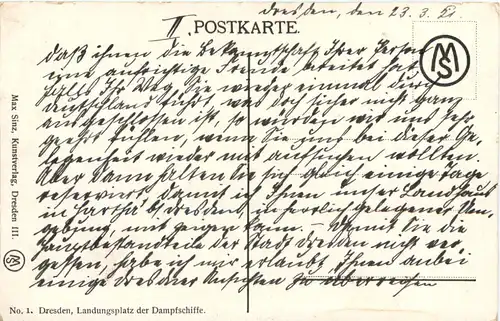 Dresden, den 23.3.21
II
POSTKARTE.
MS
daß ihnen die Bekanntschaft Ihrer Person
eine aufrichtige Freude bereitet hat
Falls Ihr Weg Sie wieder einmal durch
Deutschland führt, was doch sicher nicht ganz
ausgeschlossen ist, so würden wir uns sehr
geehrt fühlen, wenn Sie uns bei dieser Ge-
legenheit wieder mit aufsuchen wollten
Aber dann halten Sie sich gleich einige Tage
reserviert damit ich Ihnen unser Landhaus
in Hartha b/ Dresden in herrlich gelegener Um-
gebung, mit zeigen kann. – Damit Sie die
Hauptbestandteile der Stadt Dresden nicht ver-
gessen, habe ich mir erlaubt, Ihnen anbei
einige Dresdner Ansichten zu überreichen
Max Sinz, Kunstverlag, Dresden III.
MS
No. 1. Dresden, Landungsplatz der Dampfschiffe.